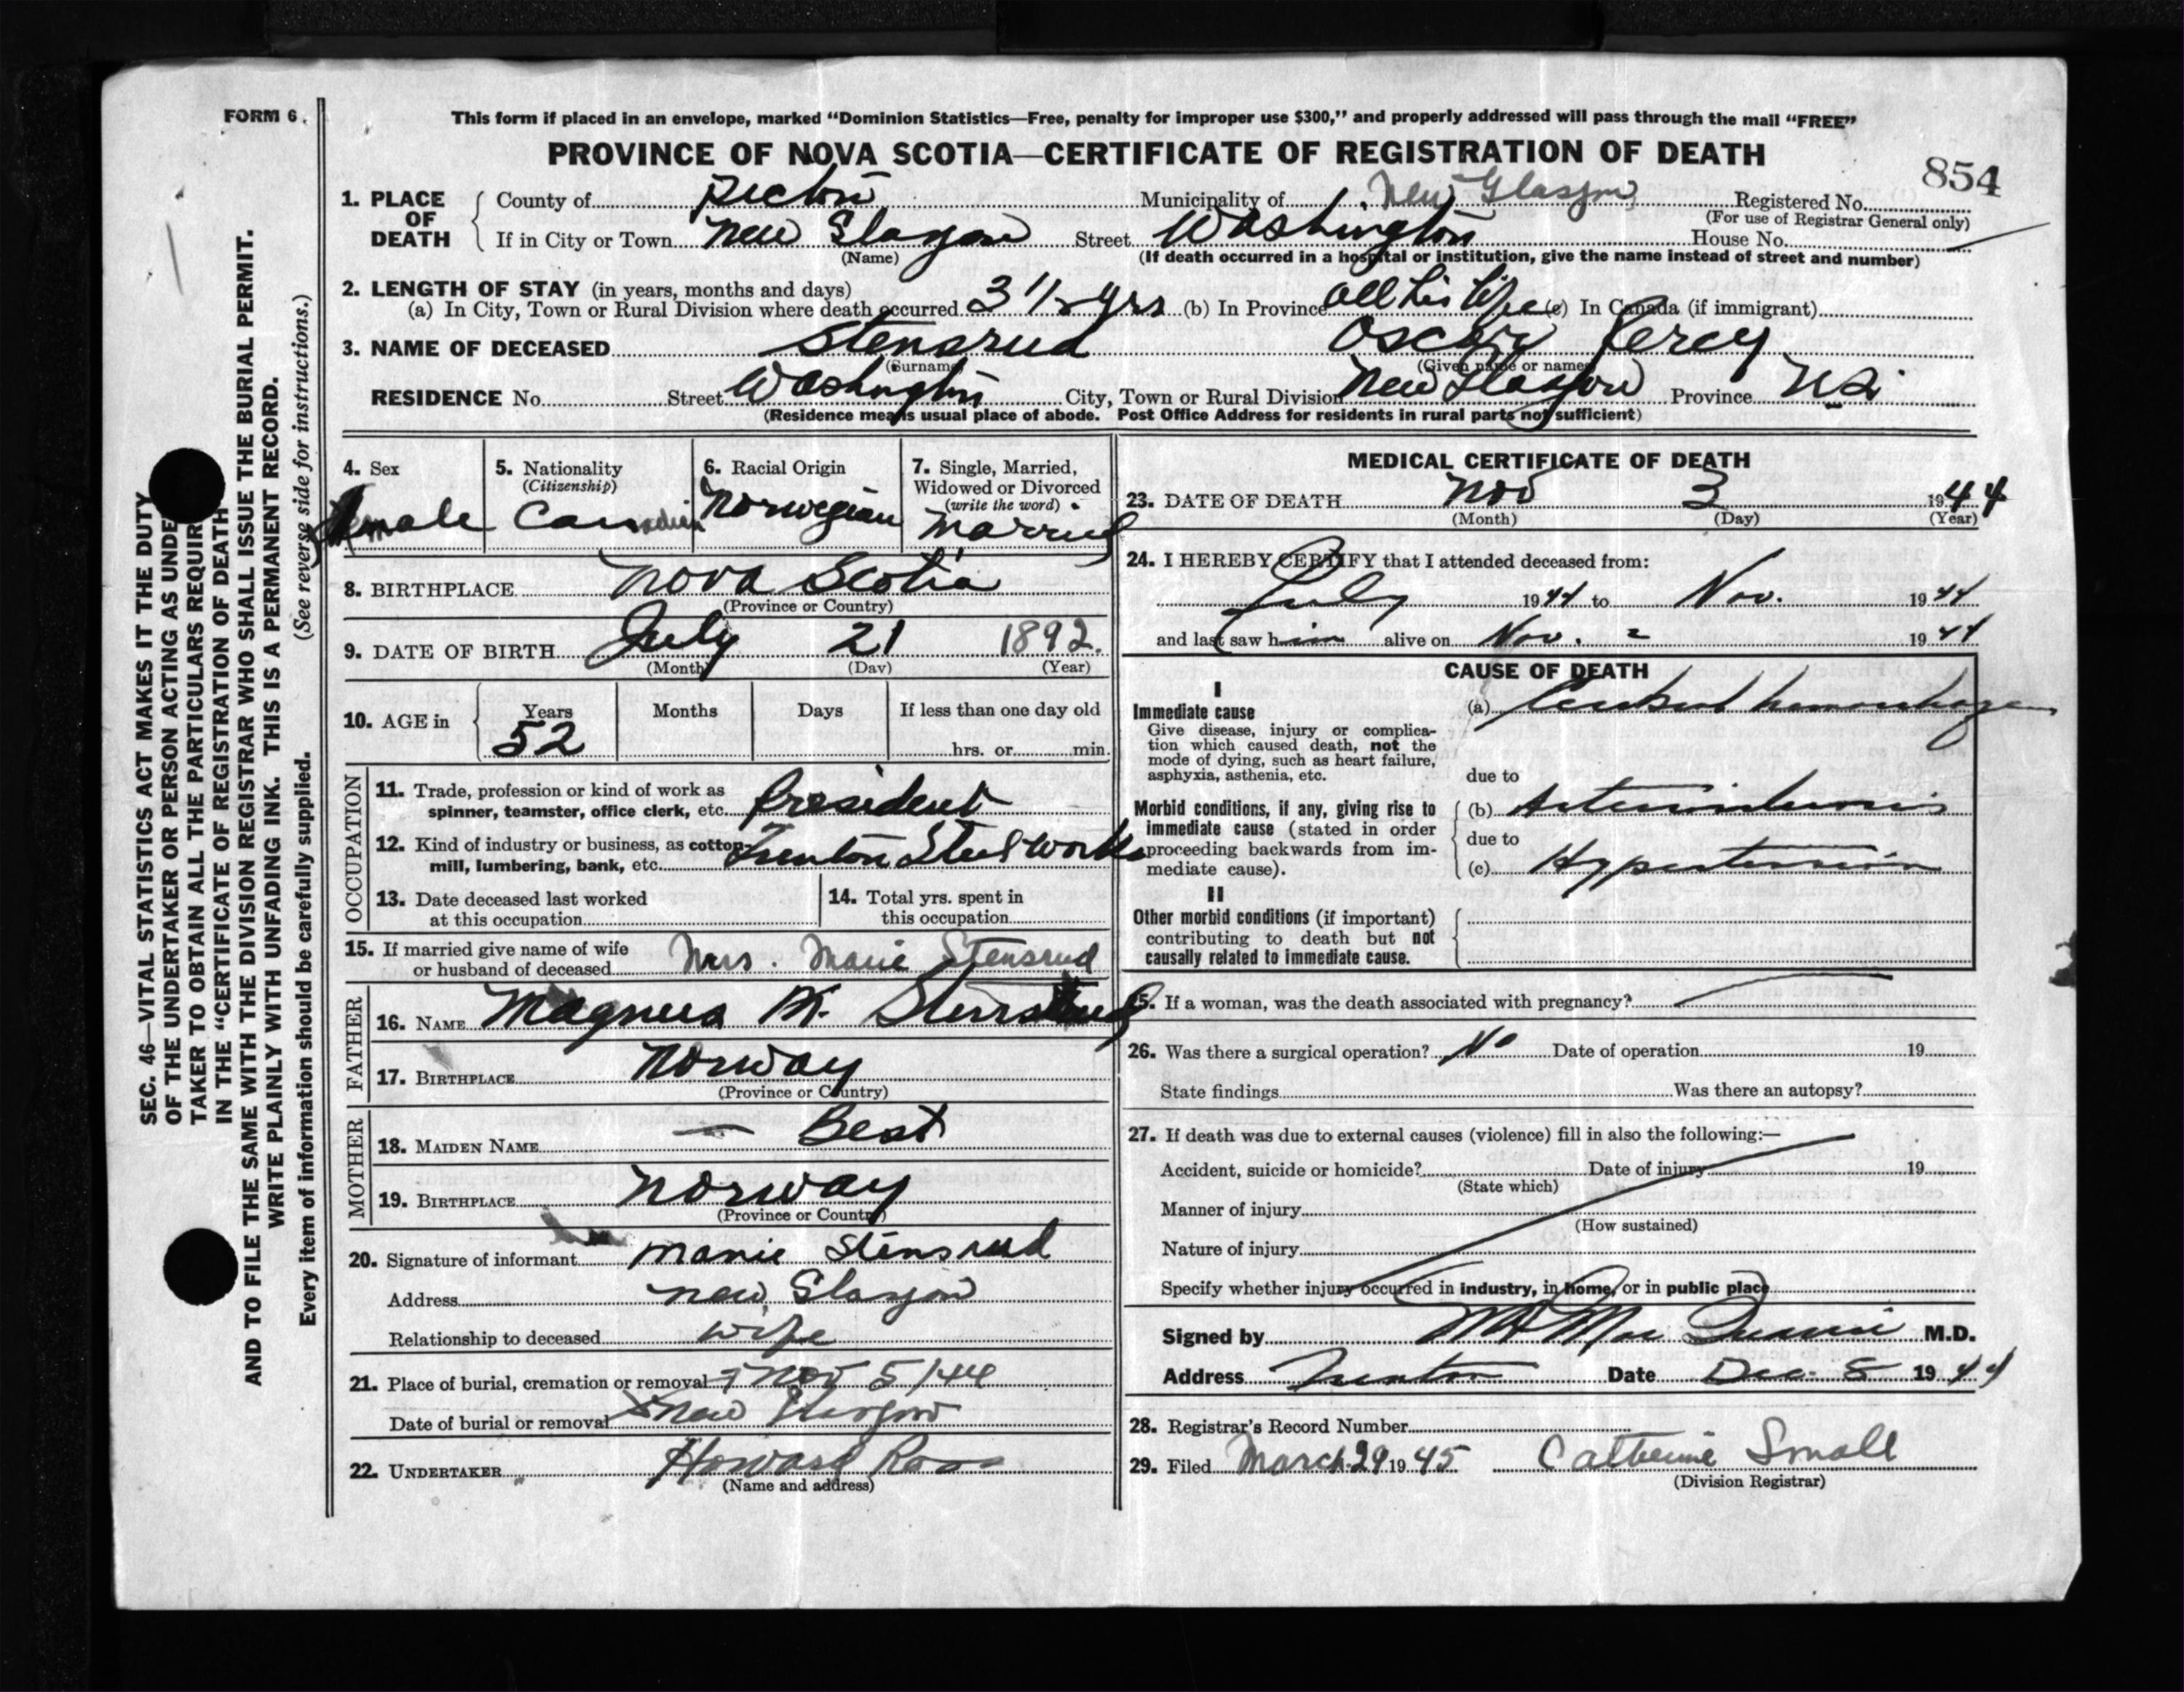 FORM 6.
This form if placed in an envelope, marked “Dominion Statistics—Free, penalty for improper use $300,” and properly addressed will pass through the mail “FREE”
PROVINCE OF NOVA SCOTIA—CERTIFICATE OF REGISTRATION OF DEATH
854
1. PLACE OF DEATH
County of Pictou Municipality of New Glasgow Registered No.
(For use of Registrar General only)
If in City or Town New Glasgow Street Washington House No.
(Name) (If death occurred in a hospital or institution, give the name instead of street and number)
2. LENGTH OF STAY (in years, months and days)
(a) In City, Town or Rural Division where death occurred 3 1/2 yrs (b) In Province all his life (c) In Canada (if immigrant)
3. NAME OF DECEASED Stensrud Oscar Percy
(Surname) (Given name or names)
RESIDENCE No. Street Washington City, Town or Rural Division New Glasgow Province N.S.
(Residence means usual place of abode. Post Office Address for residents in rural parts not sufficient)
4. Sex
male
5. Nationality
(Citizenship)
Canadian
6. Racial Origin
Norwegian
7. Single, Married,
Widowed or Divorced
(write the word)
Married
8. BIRTHPLACE Nova Scotia
(Province or Country)
9. DATE OF BIRTH July 21 1892.
(Month) (Day) (Year)
10. AGE in
Years Months Days If less than one day old
52 hrs. or min.
OCCUPATION
11. Trade, profession or kind of work as
spinner, teamster, office clerk, etc. President
12. Kind of industry or business, as cotton-
mill, lumbering, bank, etc. Trenton Steel Works
13. Date deceased last worked
at this occupation
14. Total yrs. spent in
this occupation
15. If married give name of wife
or husband of deceased Mrs. Marie Stensrud
FATHER
16. NAME Magnus M. Stensrud
17. BIRTHPLACE Norway
(Province or Country)
MOTHER
18. MAIDEN NAME — Best
19. BIRTHPLACE Norway
(Province or Country)
20. Signature of informant Marie Stensrud
Address New Glasgow
Relationship to deceased wife
21. Place of burial, cremation or removal Nov 5/44
Date of burial or removal New Glasgow
22. UNDERTAKER Howard Ross
(Name and address)
MEDICAL CERTIFICATE OF DEATH
23. DATE OF DEATH Nov 3 1944
(Month) (Day) (Year)
24. I HEREBY CERTIFY that I attended deceased from:
July 1944 to Nov. 1944
and last saw him alive on Nov. 2 1944
CAUSE OF DEATH
I
Immediate cause
Give disease, injury or complica-
tion which caused death, not the
mode of dying, such as heart failure,
asphyxia, asthenia, etc.
(a) Cerebral hemorrhage
due to
Morbid conditions, if any, giving rise to
immediate cause (stated in order
proceeding backwards from im-
mediate cause).
(b) Arteriosclerosis
due to
(c) Hypertension
II
Other morbid conditions (if important)
contributing to death but not
causally related to immediate cause.
25. If a woman, was the death associated with pregnancy?
26. Was there a surgical operation? No Date of operation 19
State findings Was there an autopsy?
27. If death was due to external causes (violence) fill in also the following:—
Accident, suicide or homicide? Date of injury 19
(State which)
Manner of injury
(How sustained)
Nature of injury
Specify whether injury occurred in industry, in home, or in public place
Signed by Mac M.D.
Address Trenton Date Dec. 8 1944
28. Registrar's Record Number
29. Filed March 29 1945 Catherine Small
(Division Registrar)
SEC. 46—VITAL STATISTICS ACT MAKES IT THE DUTY
OF THE UNDERTAKER OR PERSON ACTING AS UNDE
TAKER TO OBTAIN ALL THE PARTICULARS REQUIR
IN THE “CERTIFICATE OF REGISTRATION OF DEATH”
AND TO FILE THE SAME WITH THE DIVISION REGISTRAR WHO SHALL ISSUE THE BURIAL PERMIT.
WRITE PLAINLY WITH UNFADING INK. THIS IS A PERMANENT RECORD.
Every item of information should be carefully supplied. (See reverse side for instructions.)